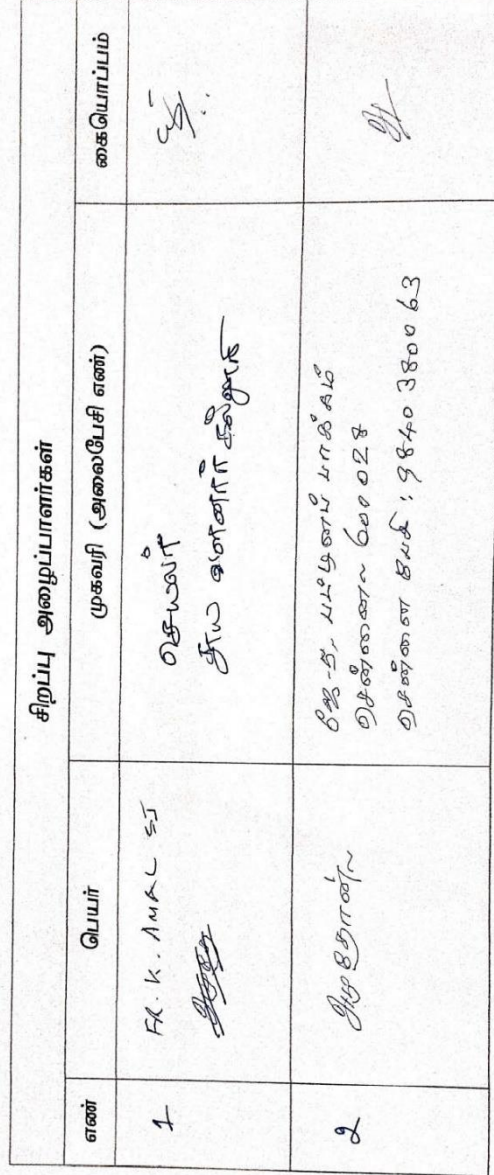 சிறப்பு அழைப்பாளர்கள்
எண் பெயர் முகவரி (அலைபேசி எண்) கையொப்பம்
1 FR. K. AMAL SJ செயலர்
தூய வளனார் கல்லூரி
2 அமுதோன் ஜே-5, பட்டினப் பாக்கம்
சென்னை 600 028
98403800 63